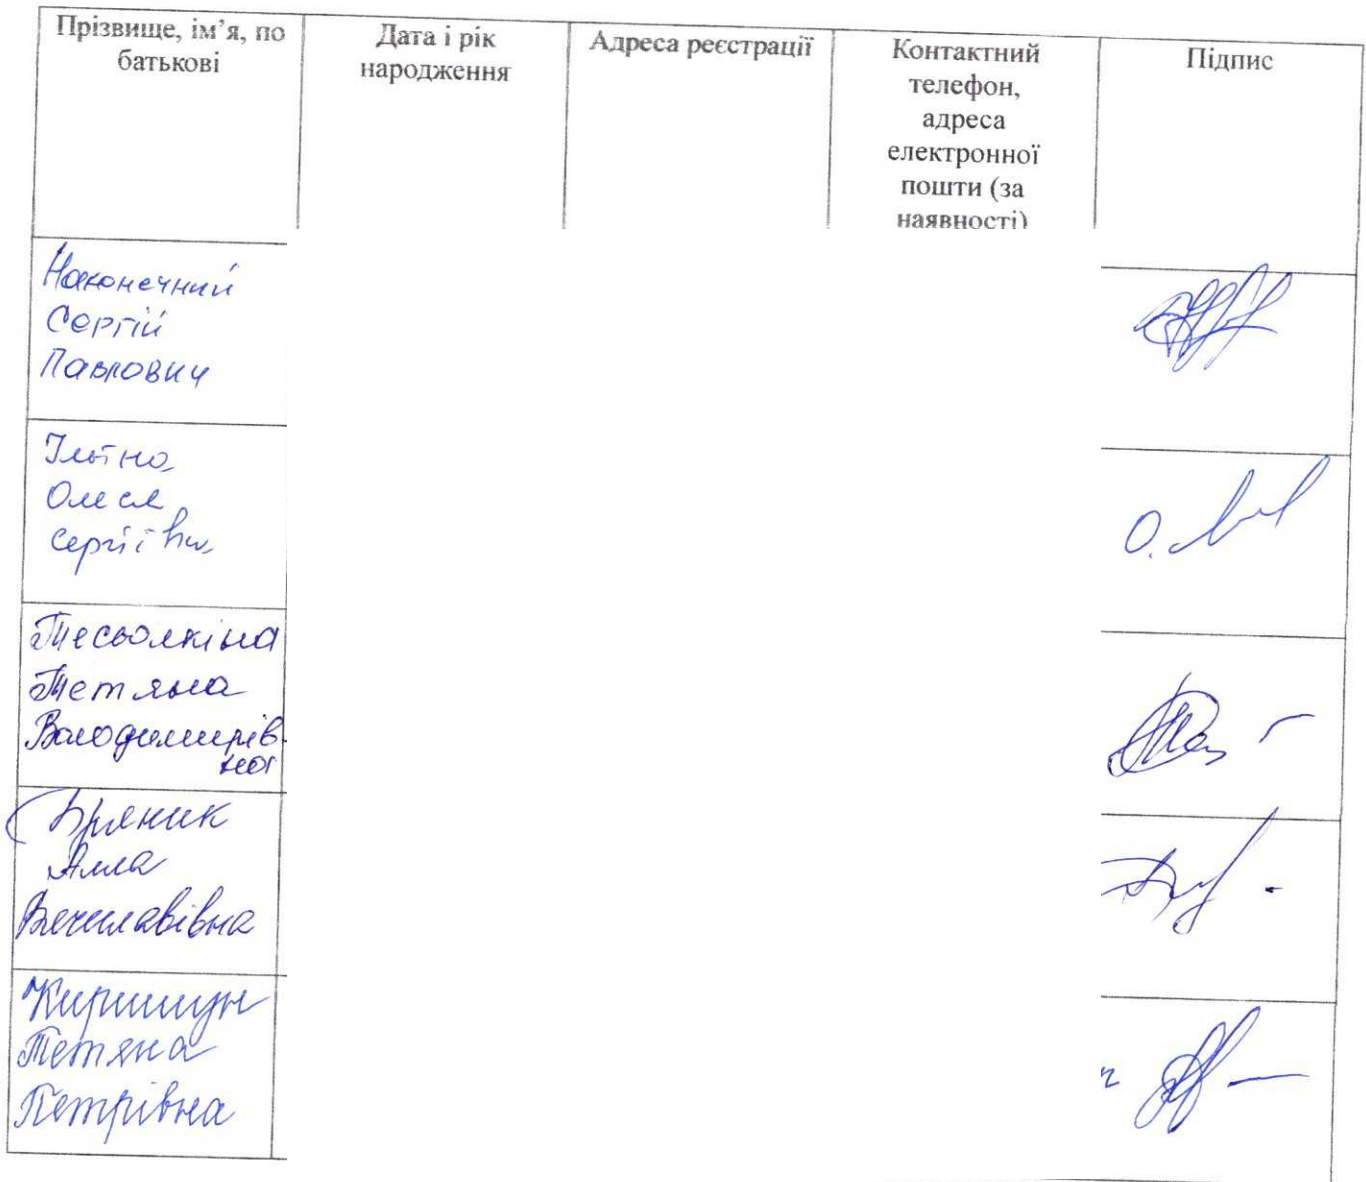 Прізвище, ім’я, по
батькові
Дата і рік
народження
Адреса реєстрації
Контактний
телефон,
адреса
електронної
пошти (за
наявності)
Підпис
Наконечний
Сергій
Павлович
Олеся
Сергіївна
Тесьолкіна
Тетяна
Володимирів-
на
Бряник
Алла
Вячеславівна
Киришун
Тетяна
Петрівна